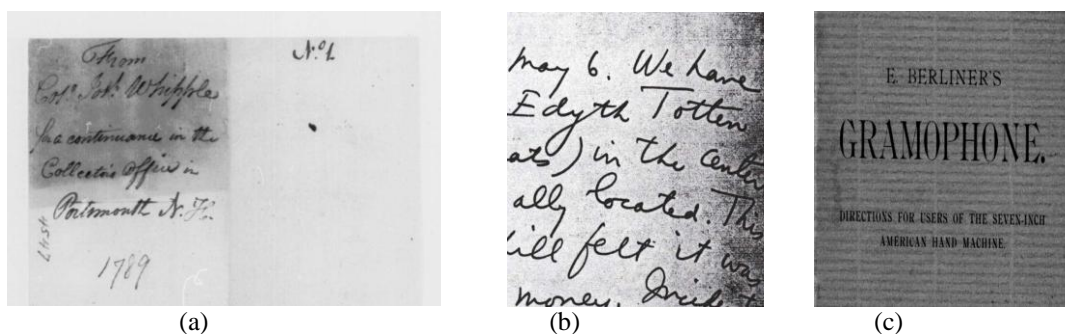 From
Colº Josº Whipple
for a continuance in the
Collector's Office in
Portsmouth N. H.
1789
Nº 1
May 6. We have
Edyth Totten
ats) in the center
ally located. This
ill felt it was
money. Incident
E. BERLINER'S
GRAMOPHONE.
DIRECTIONS FOR USERS OF THE SEVEN-INCH
AMERICAN HAND MACHINE.
(a)
(b)
(c)